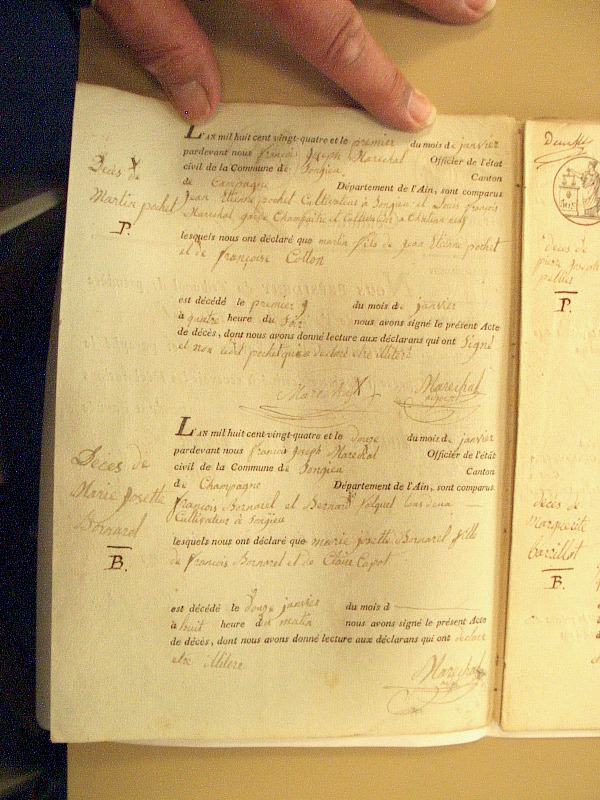 Décès de
Martin pochet
P.
L'AN mil huit cent vingt-quatre et le premier du mois de janvier
pardevant nous françois Joseph Marechal Officier de l'état
civil de la Commune de Songieu Canton
de Campagne Département de l'Ain, sont comparus
Jean Etienne pochet Cultivateur à Songieu et Louis françois
Marechal garde Champêtre et Cultivateur a
lesquels nous ont déclaré que martin fils de Jean Etienne pochet
et de françoise Collon
est décédé le premier du mois de janvier
à quatre heure du soir nous avons signé le présent Acte
de décès, dont nous avons donné lecture aux déclarans qui ont Signé
et non ledit pochet qui a déclaré etre illiteré
Marechal Marechal
adjoint
Décès de
Marie Josette
Bornarel
B.
L'AN mil huit cent vingt-quatre et le douze du mois de janvier
pardevant nous françois Joseph Marechal Officier de l'état
civil de la Commune de Songieu Canton
de Champagne Département de l'Ain, sont comparus
François Bornarel et Bernard tous deux
Cultivateur à Songieu
lesquels nous ont déclaré que marie josette Bornarel fille
de François Bornarel et de Claire Capot
est décédé le douze janvier du mois d
à huit heure du matin nous avons signé le présent Acte
de décès, dont nous avons donné lecture aux déclarans qui ont déclaré
etre illiteré
Marechal
adjt
décès de
pierre Joseph
P.
décès de
marguerite
Carrillot
B.